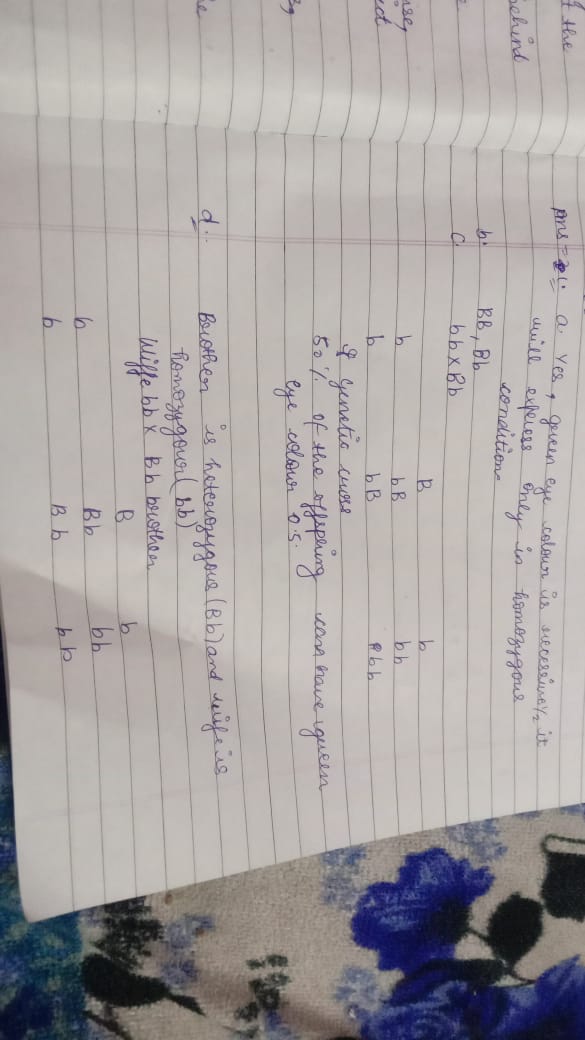 f the
behind
use,
ect
Ans = 21. a. Yes, green eye colour is recessive, it
will express only in homozygous
condition.
b. BB, Bb
c. bb x Bb
B b
b bB bb
b bB bb
genetic cross
50% of the offspring can have green
eye colour 0.5.
d. Brother is heterozygous (Bb) and wife is
homozygous (bb)
Wiffe bb x Bb brother
B b
b Bb bb
b Bb bb